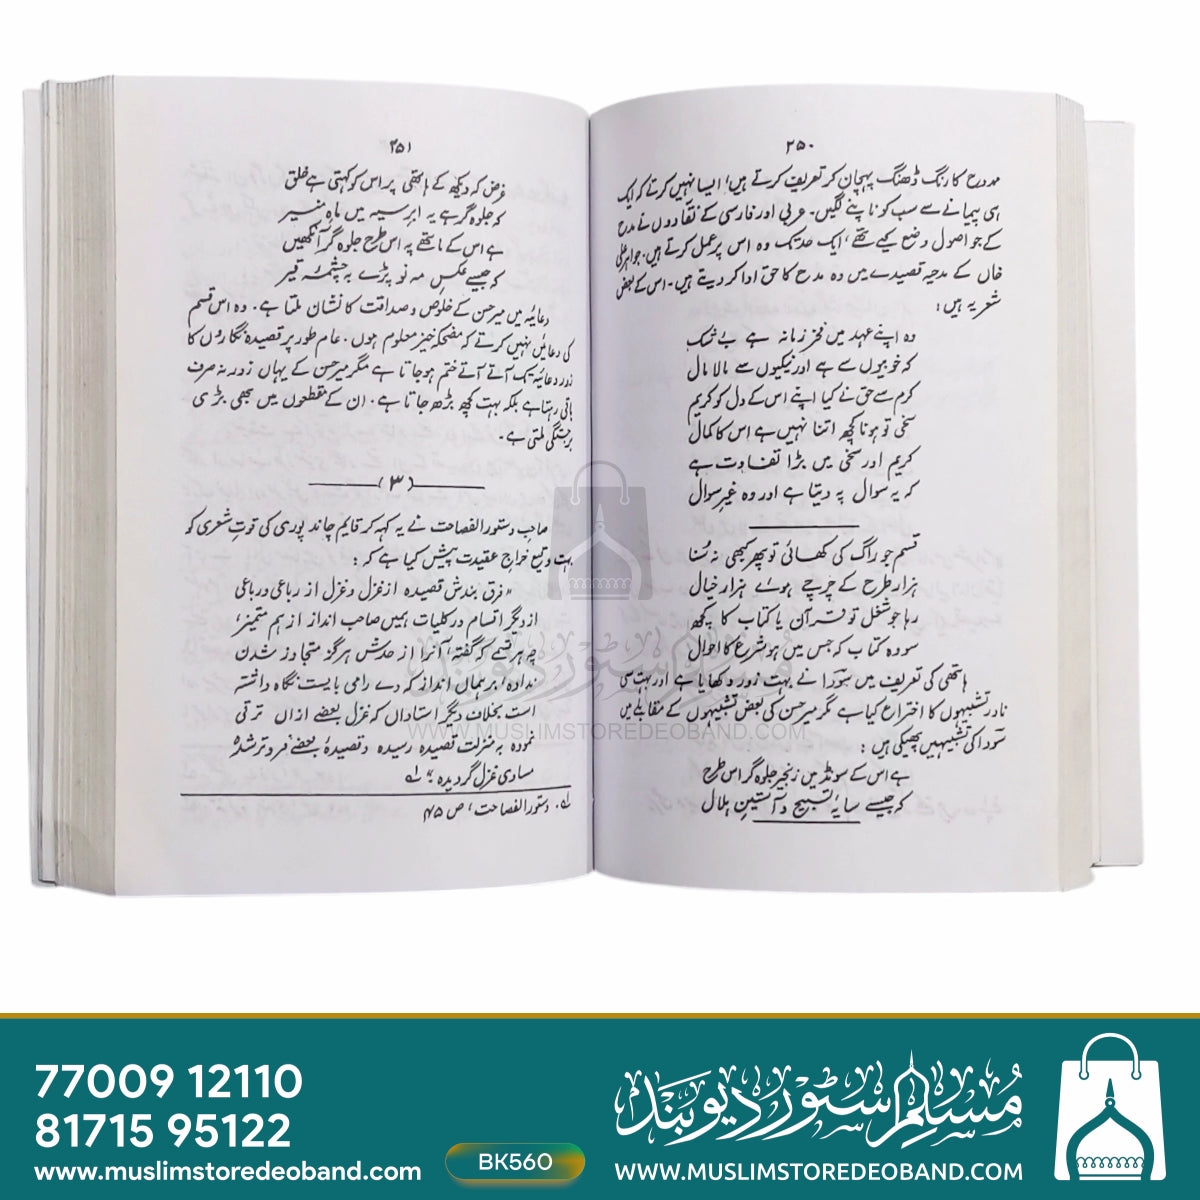 ۲۵۰
ممدوح کا رنگ ڈھنگ پہچان کر تعریف کرتے ہیں! ایسا نہیں کرتے کہ ایک
ہی پیمانے سے سب کو ناپنے لگیں۔ عربی اور فارسی کے نقادوں نے مدح
کے جو اصول وضع کیے تھے، ایک حد تک وہ اس پر عمل کرتے ہیں۔ جواہر علی
خاں کے مدحیہ قصیدے میں وہ مدح کا حق ادا کر دیتے ہیں۔ اس کے بعض
شعر یہ ہیں:
وہ اپنے عہد میں فخر زمانہ ہے بے شک
کہ خوبیوں سے ہے اور نیکیوں سے مالا مال
کرم سے حق نے کیا اپنے اس کے دل کو کریم
سخی تو ہونا کچھ اتنا نہیں ہے اس کا کمال
کریم اور سخی میں بڑا تفاوت ہے
کہ یہ سوال پہ دیتا ہے اور وہ غیرِ سوال
قسم جو راگ کی کھائی تو پھر کبھی نہ سُنا
ہزار طرح کے چرچے ہوئے ہزار خیال
رہا جو شغل تو قرآن یا کتاب کا پکھ
سو وہ کتاب کہ جس میں ہو شرع کا احوال
ہاتھی کی تعریف میں سوداؔ نے بہت زور دکھایا ہے اور بہت سی
نادر تشبیہوں کا اختراع کیا ہے مگر میر حسن کی بعض تشبیہوں کے مقابلے میں
سوداؔ کی تشبیہیں پھیکی ہیں:
ہے اس کے سونڈ میں زنجیر جلوہ گر اس طرح
کہ جیسے سایۂ تسبیح و آستینِ ہلال
۲۵۱
غرض کہ دیکھ کے ہاتھی پر اس کو کہتی ہے خلق
کہ جلوہ گر ہے یہ ابرِ سیہ میں ماہِ منیر
ہے اس کے ماتھے پہ اس طرح جلوہ گر آنکھیں
کہ جیسے عکسِ مہ نو پڑے بہ چشمۂ قیر
دعائیہ میں میر حسن کے خلوص و صداقت کا نشان ملتا ہے۔ وہ اس قسم
کی دعائیں نہیں کرتے کہ مضحکہ خیز معلوم ہوں۔ عام طور پر قصیدہ نگاروں کا
زور دعائیہ تک آتے آتے ختم ہو جاتا ہے مگر میر حسن کے یہاں زور نہ صرف
باقی رہتا ہے بلکہ بہت کچھ بڑھ جاتا ہے۔ ان کے مقطعوں میں بھی بڑی
برجستگی ملتی ہے۔
(۳)
صاحب دستور الفصاحت نے یہ کہہ کر قایم چاند پوری کی قوتِ شعری کو
بہت وقیع خراجِ عقیدت پیش کیا ہے کہ:
"فرق بندش قصیدہ از غزل و غزل از رباعی و رباعی
از دیگر اقسام در کلیات ہمیں صاحب انداز از ہم متمیز،
چہ ہر قسمے کہ گفتہ، آنرا از حدش ہرگز متجاوز شدن
ندادہ، بر ہماں انداز کہ دے رامی بایست نگاہ داشتہ
است بخلاف دیگر استاداں کہ غزل بعضے ازاں ترقی
نمودہ بہ منزلت قصیدہ رسیدہ و قصیدۂ بعضے فروتر شدہ
مساوی غزل گردیدہ" لہ
لہ۔ دستور الفصاحت، ص ۴۵
WWW.MUSLIMSTOREDEOBAND.COM
77009 12110
81715 95122
www.muslimstoredeoband.com
BK560
مُسلم سٹور دیوبند
WWW.MUSLIMSTOREDEOBAND.COM